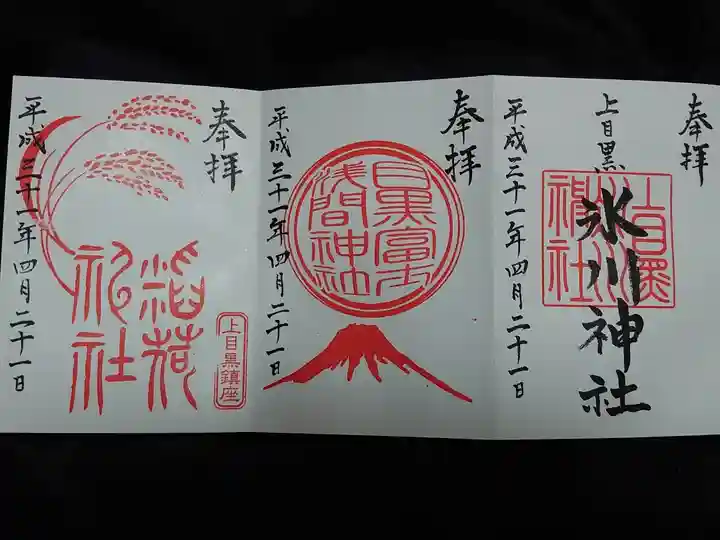 奉拝
上目黒
氷川神社
上目黒
氷川
神社
平成三十一年四月二十一日
奉拝
目黒富士
浅間神社
平成三十一年四月二十一日
奉拝
稲荷
神社
上目黒鎮座
平成三十一年四月二十一日